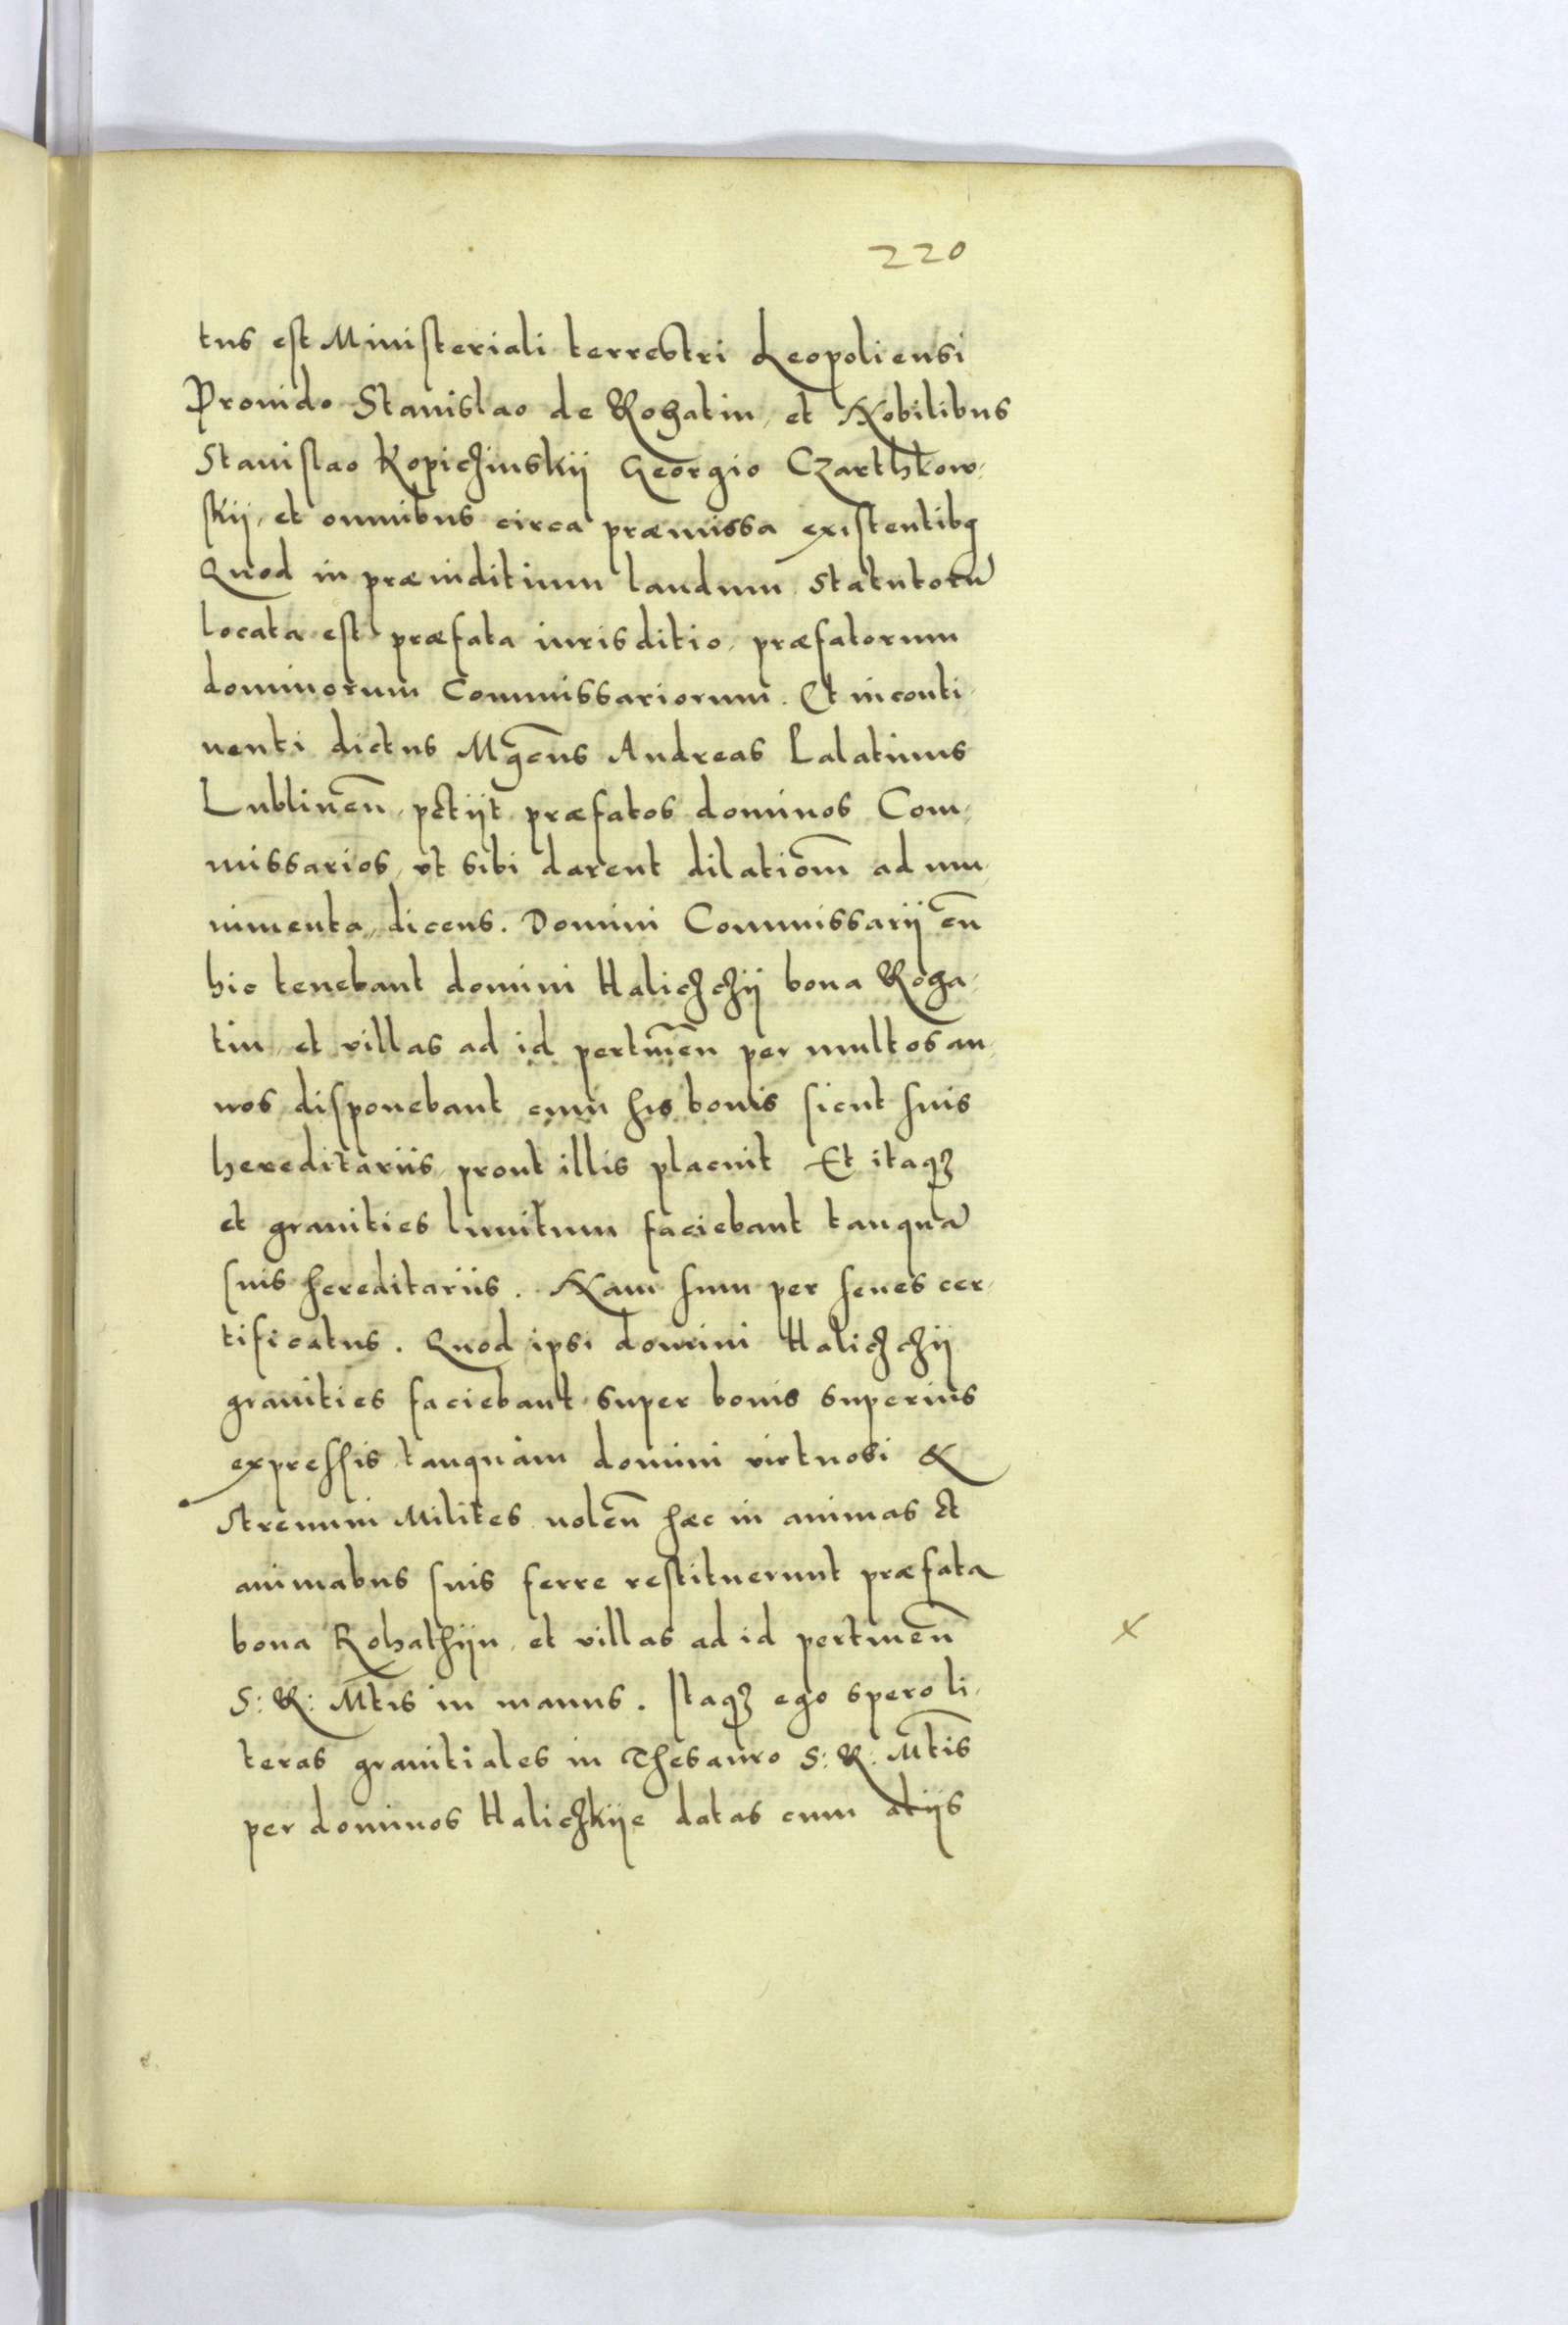 220
tus est Ministeriali terrestri Leopoliensi
Prouido Stanislao de Rohatin, et Nobilibus
Stanislao Kopiczinskij Georgio Czarthkow-
skij, et omnibus circa præmissa existentibꝫ
Quod in præiuditium laudum Statutorū
locata est præfata iurisditio, præfatorum
dominorum Commissariorum. Et inconti-
nenti dictus Mgc̄us Andreas Palatinus
Lublineñ, petijt præfatos dominos Com-
missarios, vt sibi darent dilatioem̄ ad mu-
nimenta, dicens. Domini Commissarij eñ
hic tenebant domini Haliczchij bona Roha-
tin, et villas ad id pertineñ per multos an-
nos, disponebant cum his bonis sicut suis
hereditariis, prout illis placuit Et itaqꝫ
et granities limitum faciebant tanquā
suis hereditariis. Nam sum per senes cer-
tificatus. Quod ipsi domini Haliczchij
granities faciebant super bonis superius
expressis tanquam domini virtuosi &
Strenuui Milites noleñ hæc in animas et
animabus suis ferre restituerunt præfata
bona Rohathijn, et villas ad id pertineñ
S: R: Mt̄is in manus. Itaqꝫ ego spero li-
teras granitiales in Thesauro S: R: Mt̄is
per dominos Haliczkije datas cum alijs
x